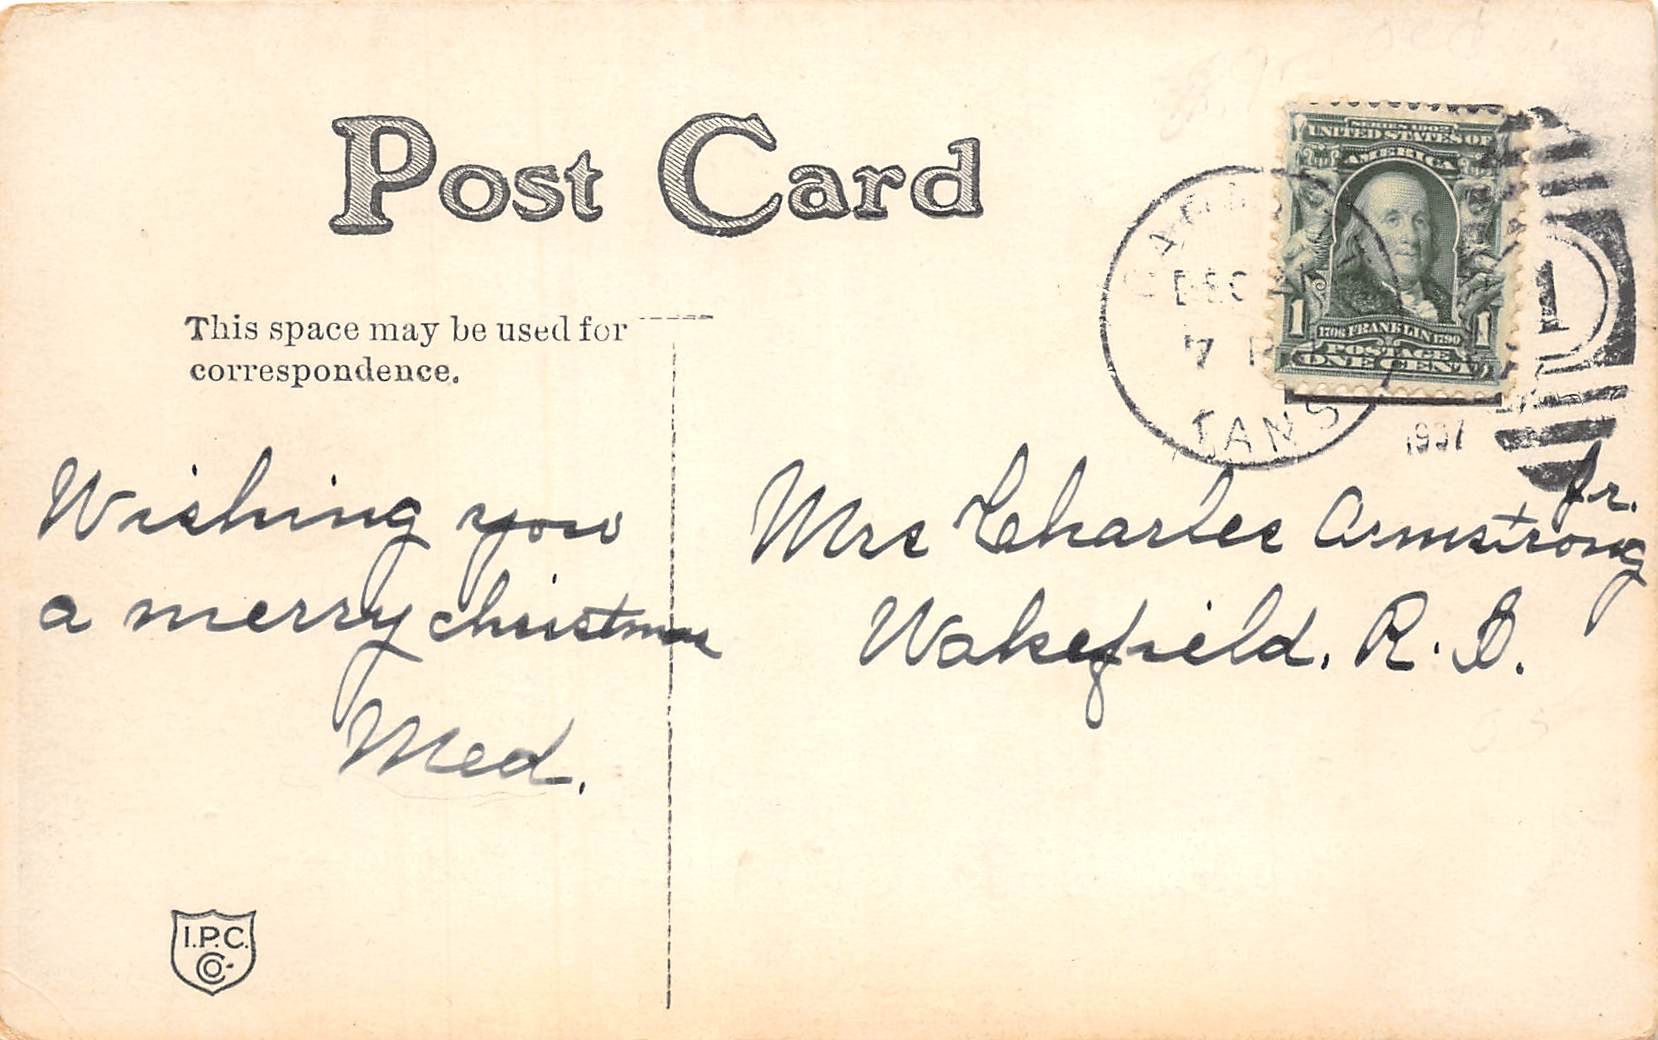 Post Card
This space may be used for
correspondence.
Wishing you
a merry christmas
Med.
I.P.C.
Co.
SERIES 1902
UNITED STATES OF
AMERICA
1706 FRANKLIN 1790
1 1
POSTAGE
ONE CENT
DEC
7 P
KANS
1907
1
Mrs Charles Armstrong Jr.
Wakefield, R. D.